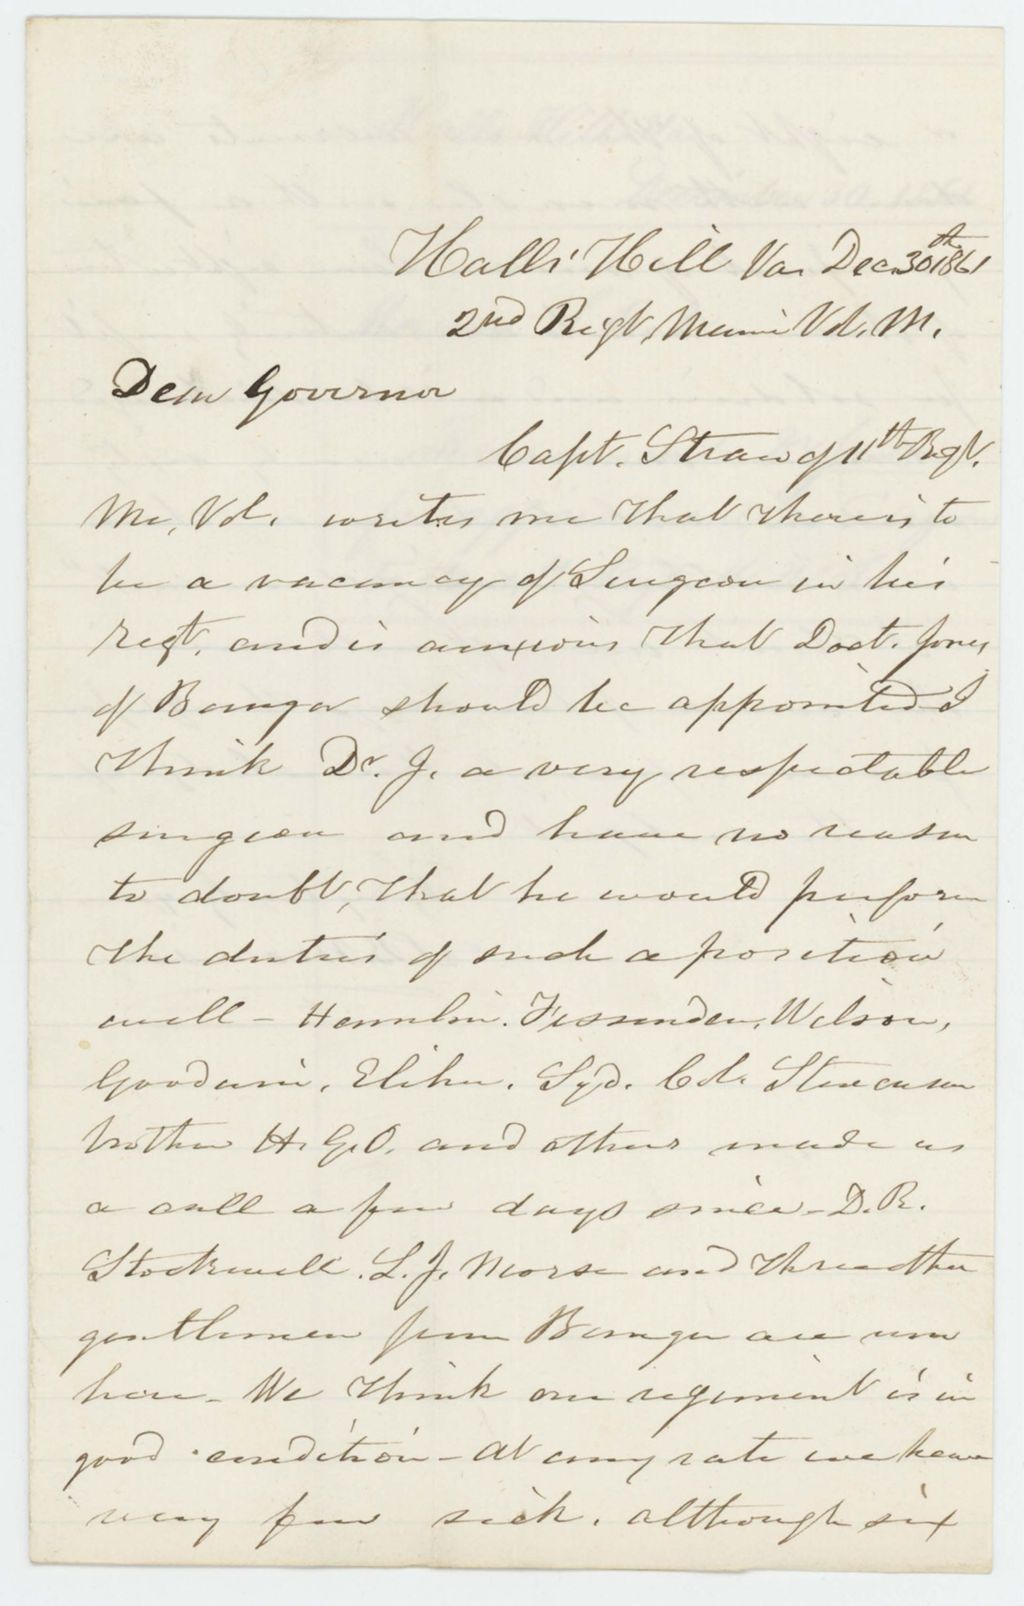 Halls' Hill Va. Dec. 30th 1861
2nd Regt Maine Vol. M.
Dear Governor
Capt. Straw of 11th Regt.
Me, Vol. writes me that there is to
be a vacancy of Surgeon in his
regt. and is anxious that Doct. Jones
of Bangor should be appointed I
think Dr. J. a very respectable
surgeon and have no reason
to doubt, that he would perform
the duties of such a position
well - Hamlin. Fessenden, Wilson,
Goodwin, Elihu. Syd. Col. Stevenson
brother H. G. O. and others made us
a call a few days since - D. R.
Stockwell. L. J. Morse and three other
gentlemen from Bangor are now
here - We think our regiment is in
good condition - at any rate we have
very few sick. although six